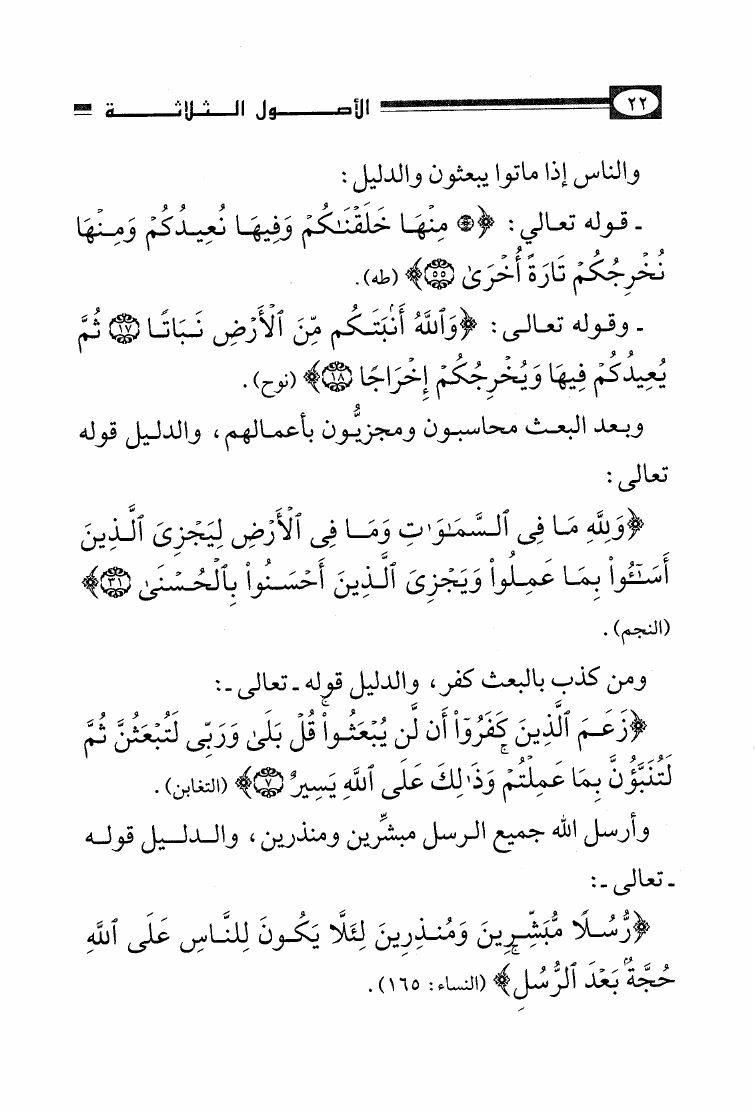 ٢٢ الأصول الثلاثة
والناس إذا ماتوا يبعثون والدليل :
ـ قوله تعالي : ﴿ ۞ مِنْهَا خَلَقْنَٰكُمْ وَفِيهَا نُعِيدُكُمْ وَمِنْهَا
نُخْرِجُكُمْ تَارَةً أُخْرَىٰ ٥٥﴾ (طه).
ـ وقوله تعالى : ﴿وَٱللَّهُ أَنۢبَتَكُم مِّنَ ٱلْأَرْضِ نَبَاتًا ١٧ ثُمَّ
يُعِيدُكُمْ فِيهَا وَيُخْرِجُكُمْ إِخْرَاجًا ١٨﴾ (نوح).
وبعد البعث محاسبون ومجزيُّون بأعمالهم، والدليل قوله
تعالى :
﴿وَلِلَّهِ مَا فِى ٱلسَّمَٰوَٰتِ وَمَا فِى ٱلْأَرْضِ لِيَجْزِىَ ٱلَّذِينَ
أَسَٰٓـُٔوا۟ بِمَا عَمِلُوا۟ وَيَجْزِىَ ٱلَّذِينَ أَحْسَنُوا۟ بِٱلْحُسْنَى ٣١﴾
(النجم).
ومن كذب بالبعث كفر، والدليل قوله ـ تعالى ـ :
﴿زَعَمَ ٱلَّذِينَ كَفَرُوٓا۟ أَن لَّن يُبْعَثُوا۟ ۚ قُلْ بَلَىٰ وَرَبِّى لَتُبْعَثُنَّ ثُمَّ
لَتُنَبَّؤُنَّ بِمَا عَمِلْتُمْ ۚ وَذَٰلِكَ عَلَى ٱللَّهِ يَسِيرٌ ٧﴾ (التغابن).
وأرسل الله جميع الرسل مبشِّرين ومنذرين، والدليل قوله
ـ تعالى ـ :
﴿رُّسُلًا مُّبَشِّرِينَ وَمُنذِرِينَ لِئَلَّا يَكُونَ لِلنَّاسِ عَلَى ٱللَّهِ
حُجَّةٌۢ بَعْدَ ٱلرُّسُلِ﴾ (النساء: ١٦٥).